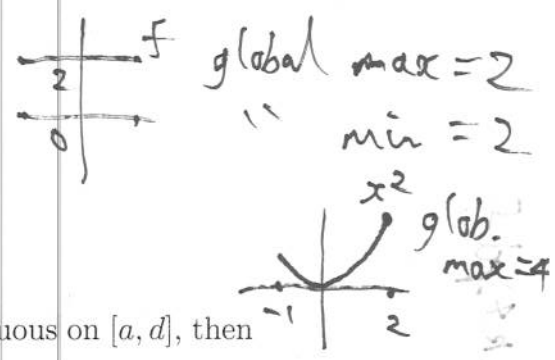 f
global max = 2
2
" min = 2
0
x²
glob.
max = 4
-1
2
uous on [a, d], then